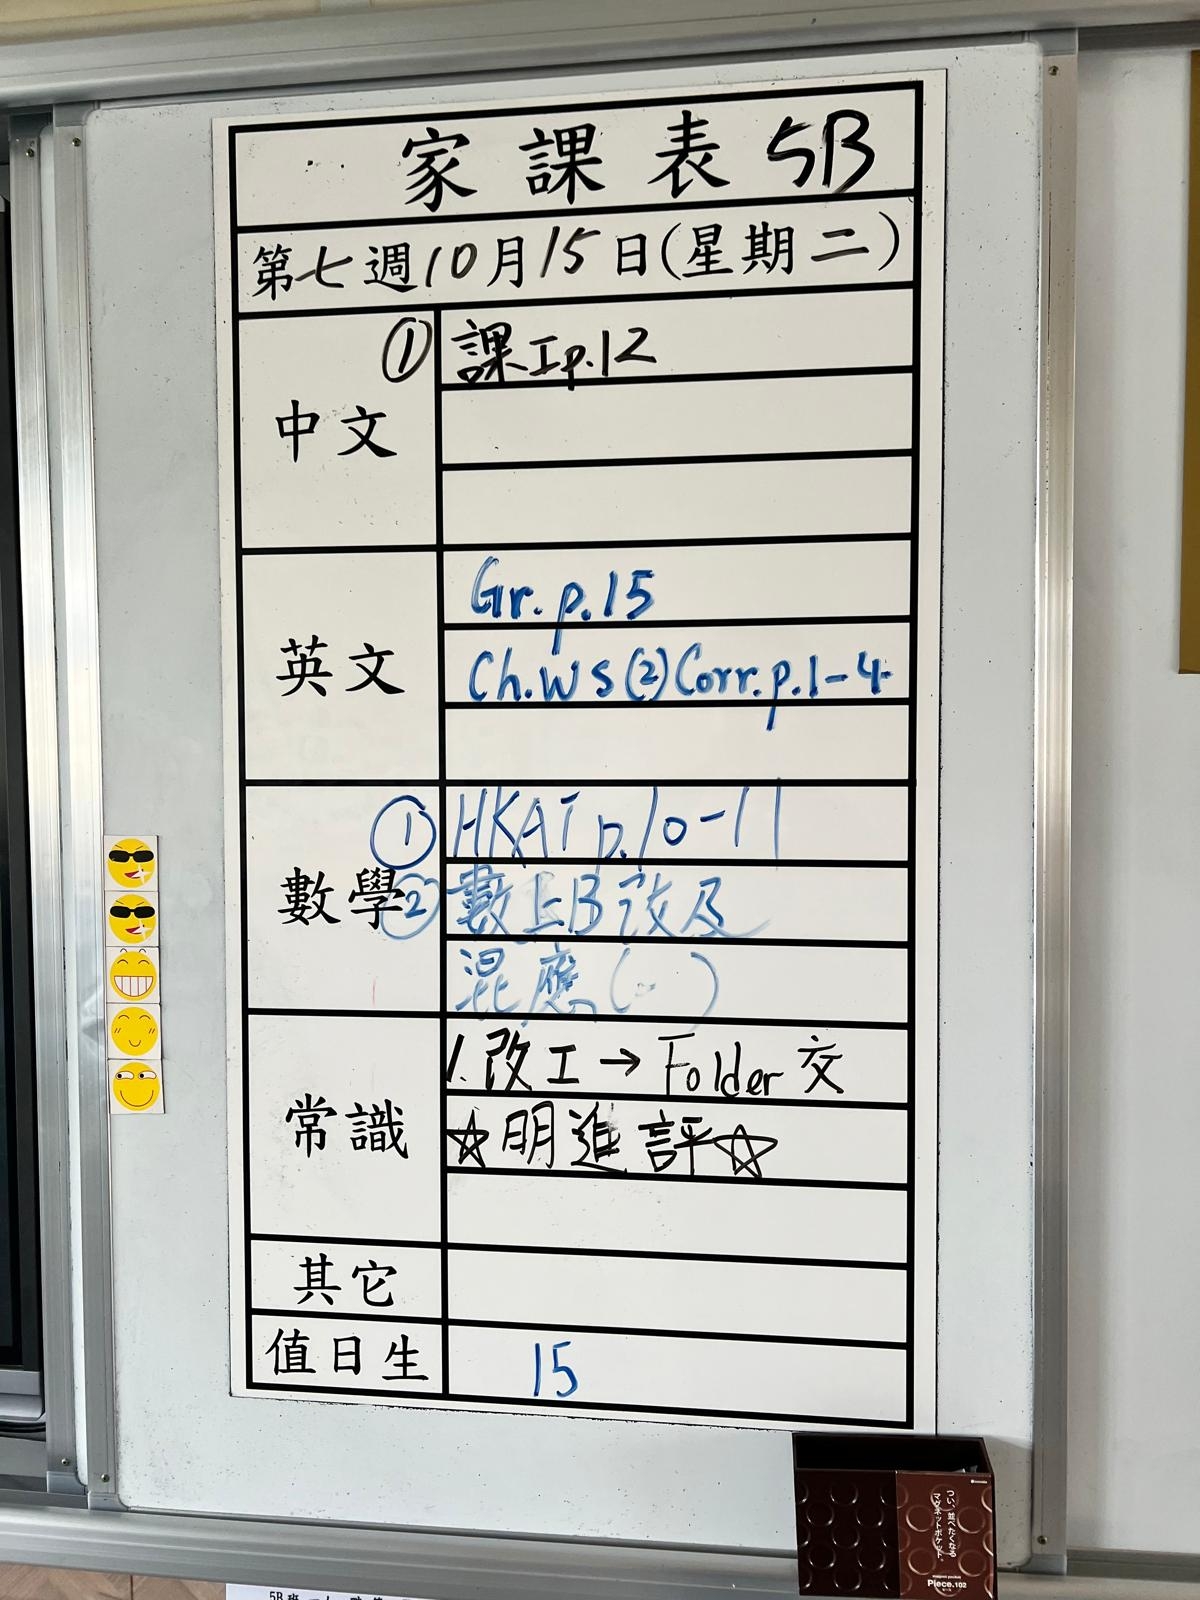 家課表 5B
第七週10月15日(星期二)
中文
① 課工p.12
英文
Gr. p.15
Ch.WS(2)Corr.p.1-4
數學
① HKAT p.10-11
② 數上B改及
混應( )
常識
1. 改工→Folder交
☆明進評☆
其它
值日生
15
つい、並べたくなる
マグネットポケット。
Piece.102